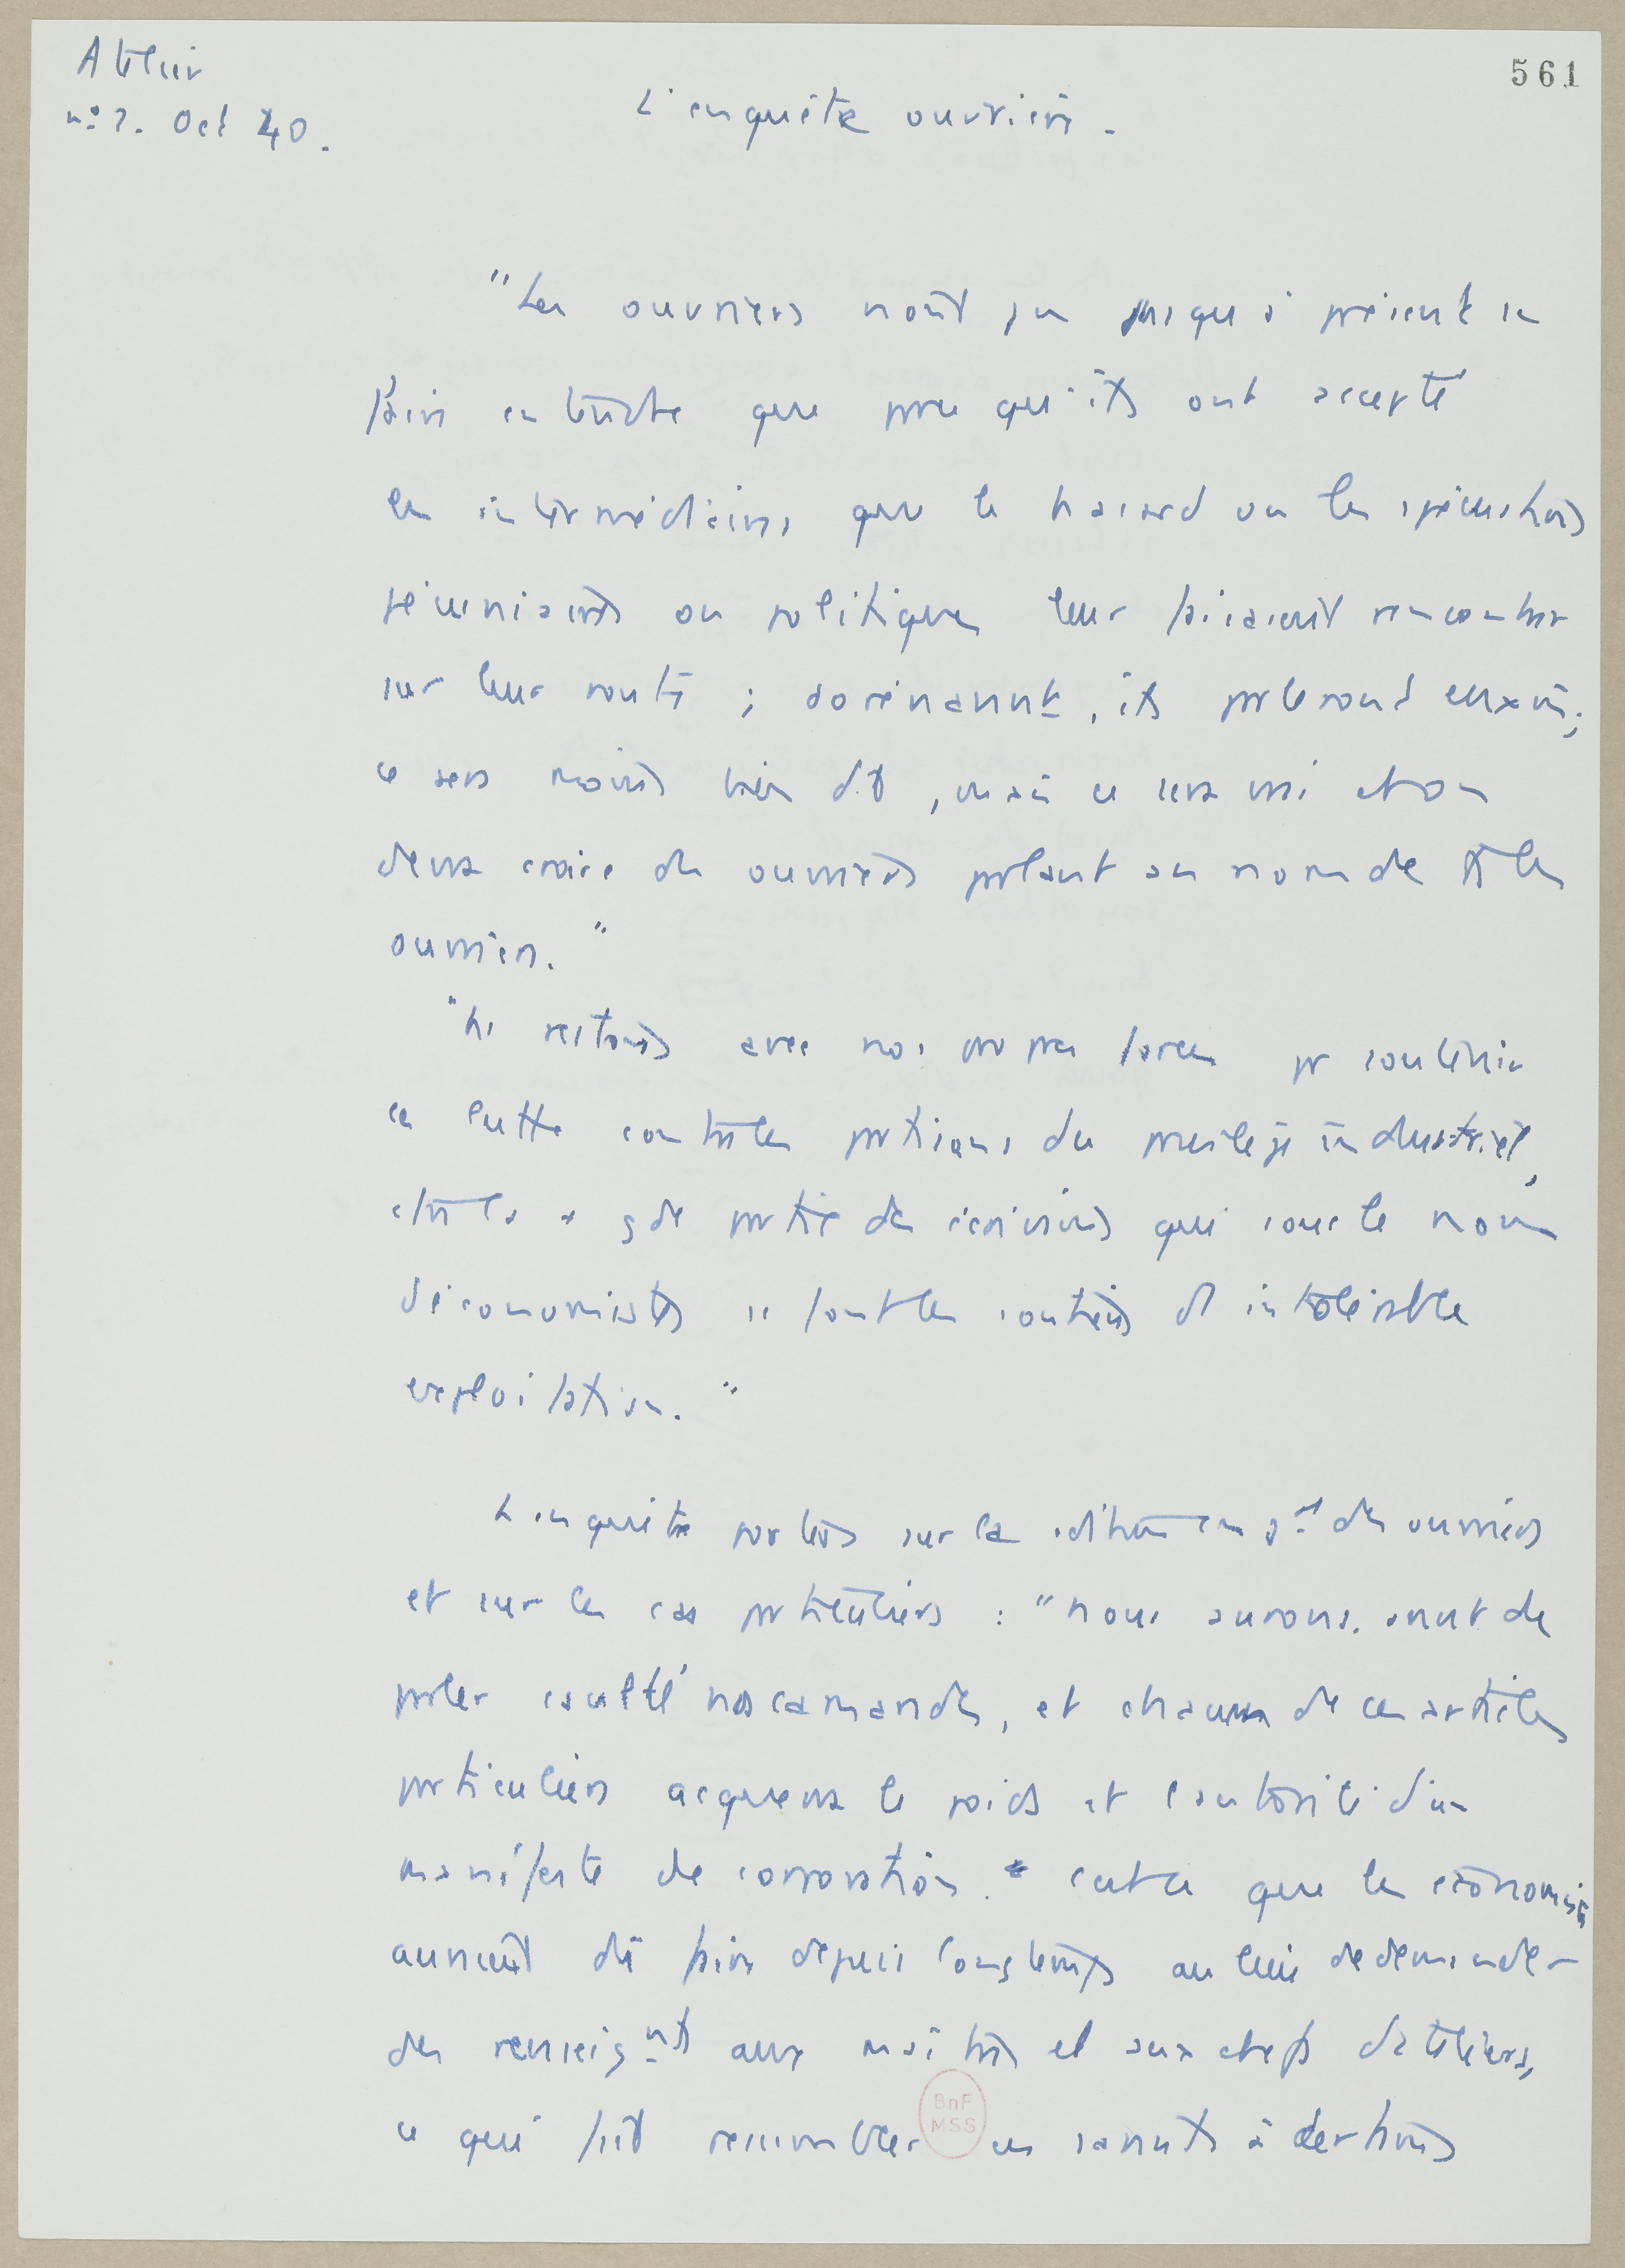 Atelier
n° 2. Oct 40.
561
L'enquête ouvrière.
"Les ouvriers n'ont pu jusqu'à présent se
faire entendre que parce qu'ils ont accepté
les intermédiaires que le hasard ou les spéculations
pécuniaires ou politiques leur faisaient rencontrer
sur leur route ; dorénavant, ils parleront eux-m̂;
ce sera moins bien dit, mais ce sera vrai et on
devra croire des ouvriers parlant au nom de ts les
ouvriers."
"Ns restons avec nos propres forces pr soutenir
la lutte contre les partisans du privilège industriel,
et ctre la + gde partie des écrivains qui sous le nom
d'économistes se font les soutiens d'1 intolérable
exploitation."
L'enquête portera sur la situation en gal des ouvriers
et sur les cas particuliers : "Nous aurons, avant de
parler consulté nos camarades, et chacun de ces articles
particuliers acquerra le poids et l'autorité d'un
manifeste de corporation. C'est ce que les économistes
auraient dû faire depuis longtemps au lieu de demander
des renseignts aux maîtres et aux chefs d'ateliers,
ce qui fait ressembler ces savants à des